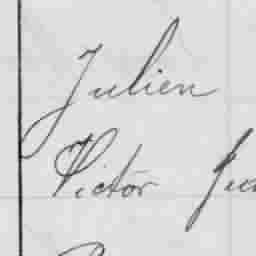 Julien
Victor